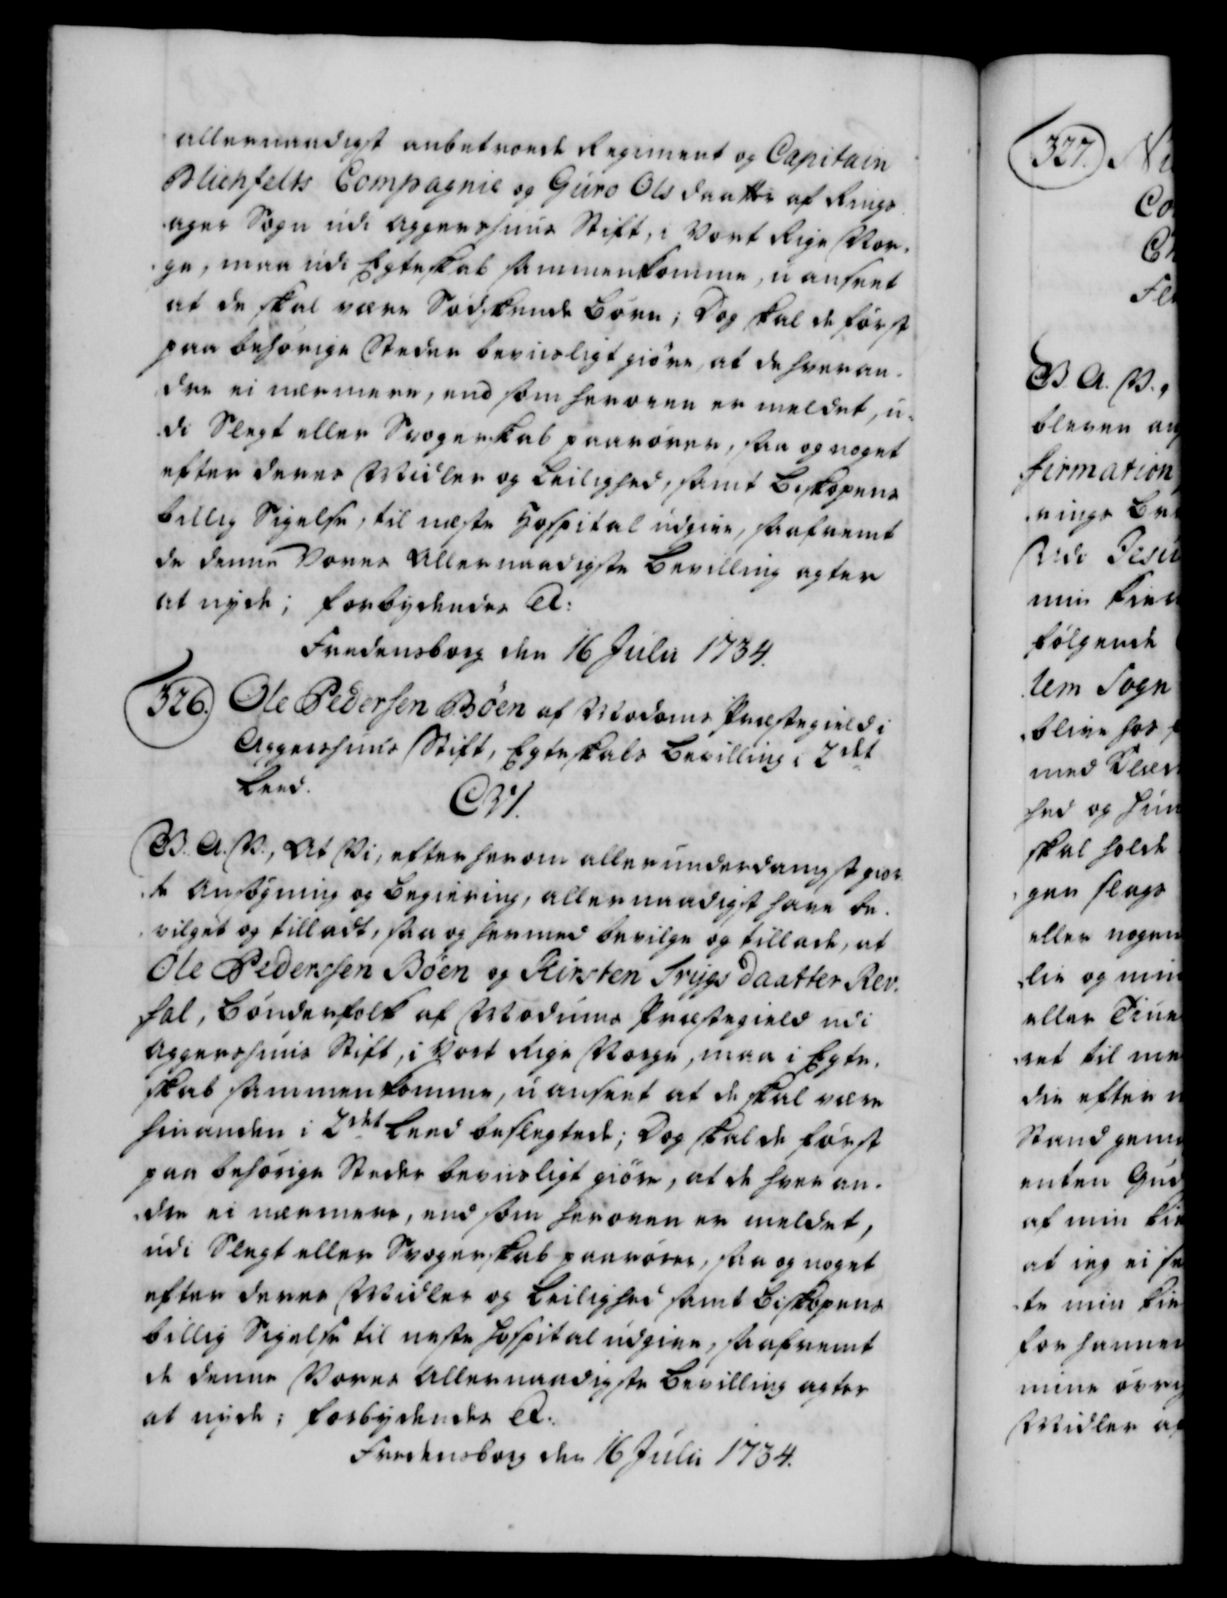 allernaadigst anbetroede Regiment og Capitain
Blichfelts Compagnie og Guro Olsdaatter af Rings-
ager Sogn udi Aggershuus Stift, i Vort Rige Nor-
ge, maa udi Egteskab sammenkomme, u anseet
at de skal være Sødskende Børn; Dog skal de først
paa behørige Steder beviisligt giøre, at de hveran-
dre ei nærmere, end som heroven er meldet, u-
di Slegt eller Svogerskab paarører, saa og noget
efter deres Midler og Leilighed, samt Biskopens
billig Sigelse, til næste Hospital udgive, saafremt
de denne Vores Allernaadigste Bevilling agter
at nyde; forbydendes &:
Fredensborg den 16 Julii 1734.
326. Ole Pedersen Böen af Modoms Præstegield i
Aggershuus Stift, Egteskabs Bevilling i 2det
Leed.
C 6ti.
V. A. V., At Vi, efter herom allerunderdanigst gior-
te Ansøgning og Begiering, allernaadigst have be-
vilget og tilladt, saa og hermed bevilge og tillade, at
Ole Pederssen Böen og Kirsten Trygs Daatter Rev-
hol, Bønderfolk af Modums Præstegield udi
Aggershuus Stift, i Vort Rige Norge, maa i Egte-
skab sammenkomme, u anseet at de skal være
hinanden i 2det Leed beslegtede; Dog skal de først
paa behørige Steder beviisligt giøre, at de hveran-
dre ei nærmere, end som heroven er meldet,
udi Slegt eller Svogerskab paarører, saa og noget
efter deres Midler og Leilighed samt Biskopens
billig Sigelse til neste Hospital udgive, saafremt
de denne Vores Allernaadigste Bevilling agter
at nyde; forbydendes &:
Fredensborg den 16 Julii 1734.
327. Ni
Co
Ch
Fle
V. A. V.,
bleven an
firmation
rings Be
udi Jesu
min kier
følgende
lem Sogn
blive hos
med Klæ
hed og hun
skal holde
gen slags
eller nogen
lie og min
eller Tiene
ret til me
die efter
Stand gem
enten Gud
af min kie
at ieg ei se
te min kie
for hannem
mine øvri
Midler af